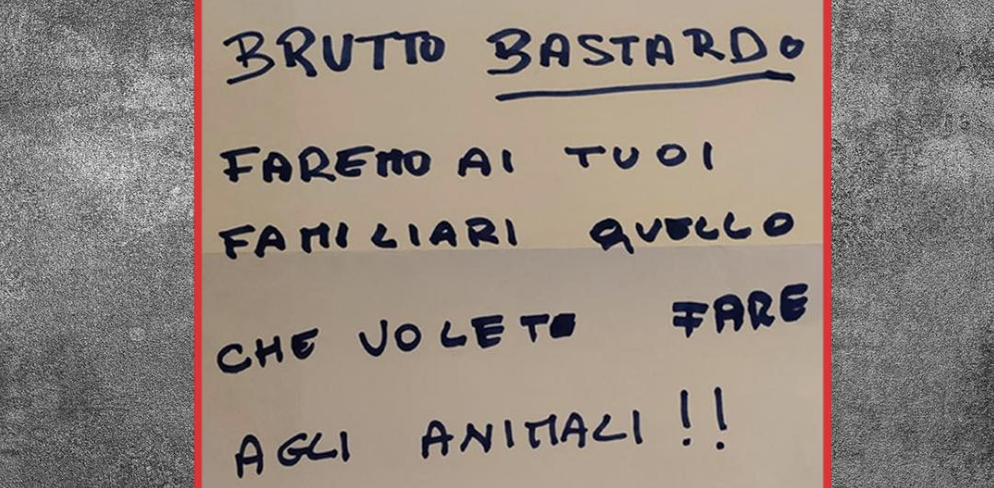 BRUTTO BASTARDO
FAREMO AI TUOI
FAMILIARI QUELLO
CHE VOLETE FARE
AGLI ANIMALI!!